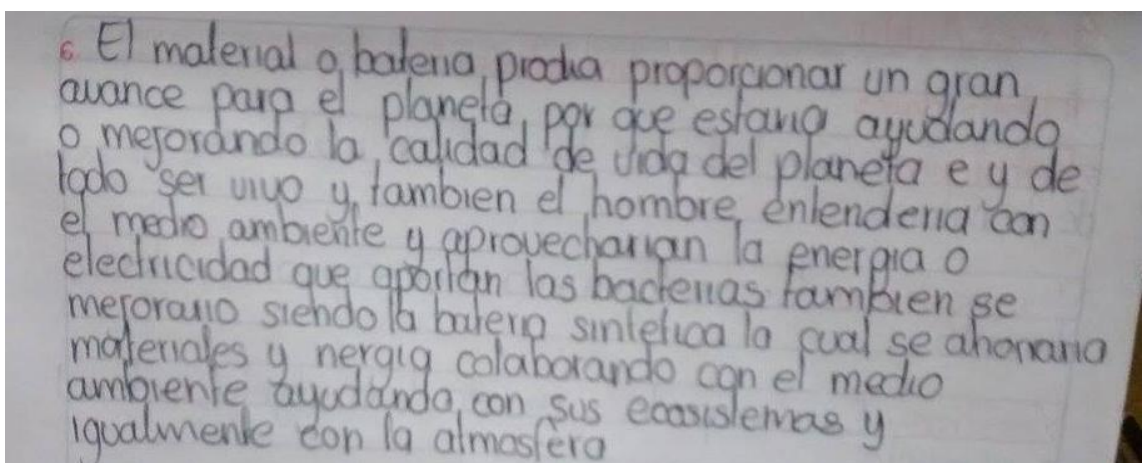 6. El material o bateria prodia proporcionar un gran
avance para el planeta, por que estaria ayudando
o mejorando la calidad de vida del planeta e y de
todo ser vivo y tambien el hombre entenderia con
el medio ambiente y aprovecharian la energia o
electricidad que aportan las bacterias tambien se
mejorario siendo la bateria sintetica la cual se ahorraria
materiales y nergia colaborando con el medio
ambiente ayudando con sus ecosistemas y
igualmente con la atmosfera